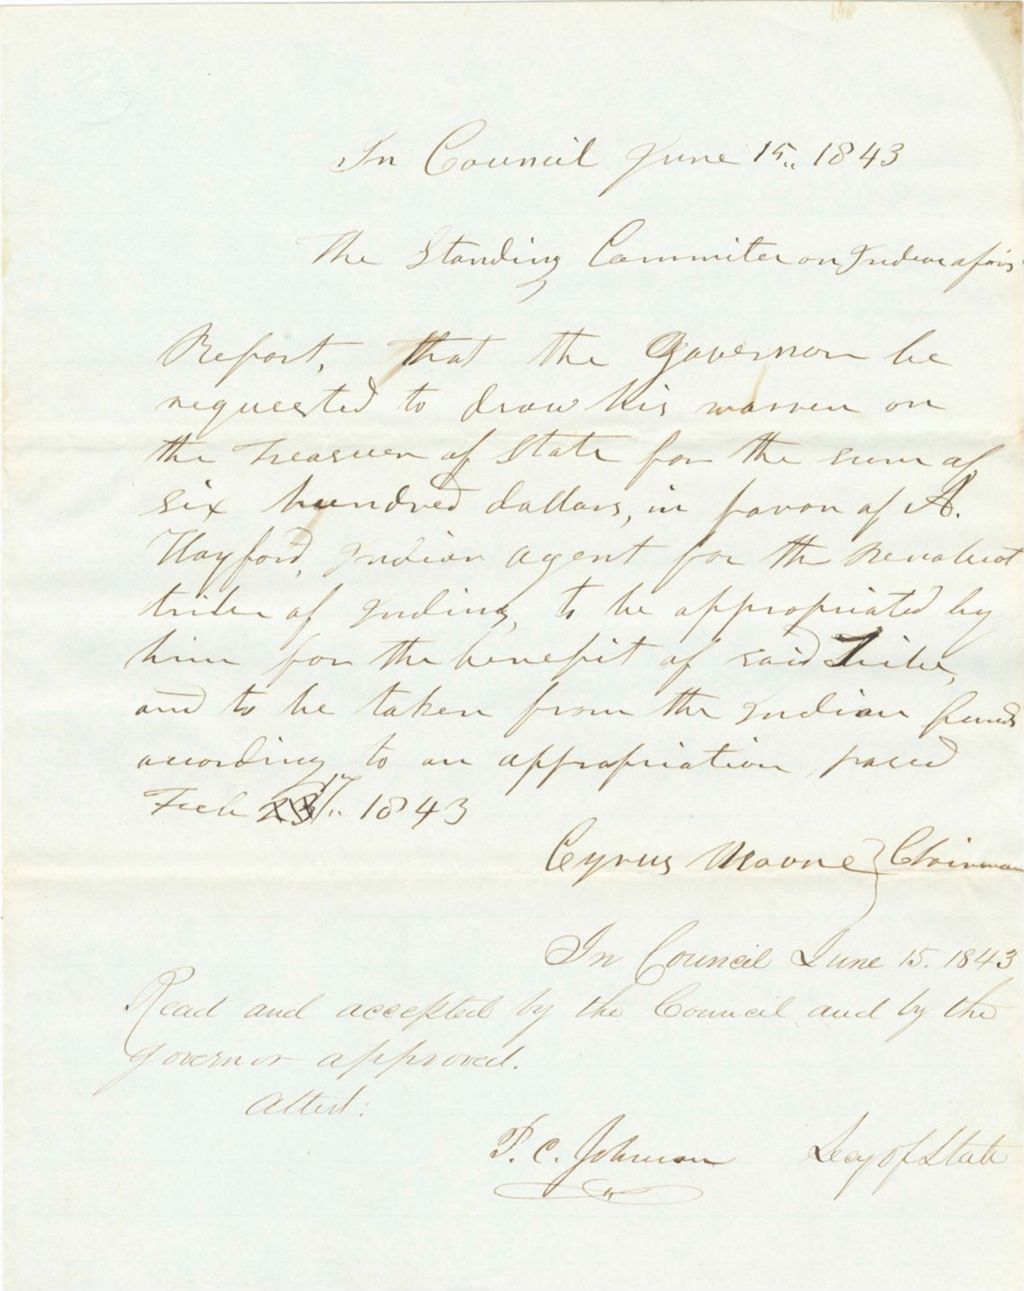 In Council June 15,, 1843
The Standing Commiter on Indian afairs
Report, that the Governor be
requested to draw his warren on
the Treasuer of State for the sum of
six hundred dollars, in favor of A.
Hayford, Indian agent for the Penobscot
tribe of Indins, to be appropriated by
him for the benefit of said Tribe,
and to be taken from the Indian funds
acording to an appropriation pased
Feb 17,, 1843
Cyrus Moore } Chirman
In Council June 15. 1843
Read and accepted by the Council and by the
Governor approved.
Attest:
P. C. Johnson Secy of State